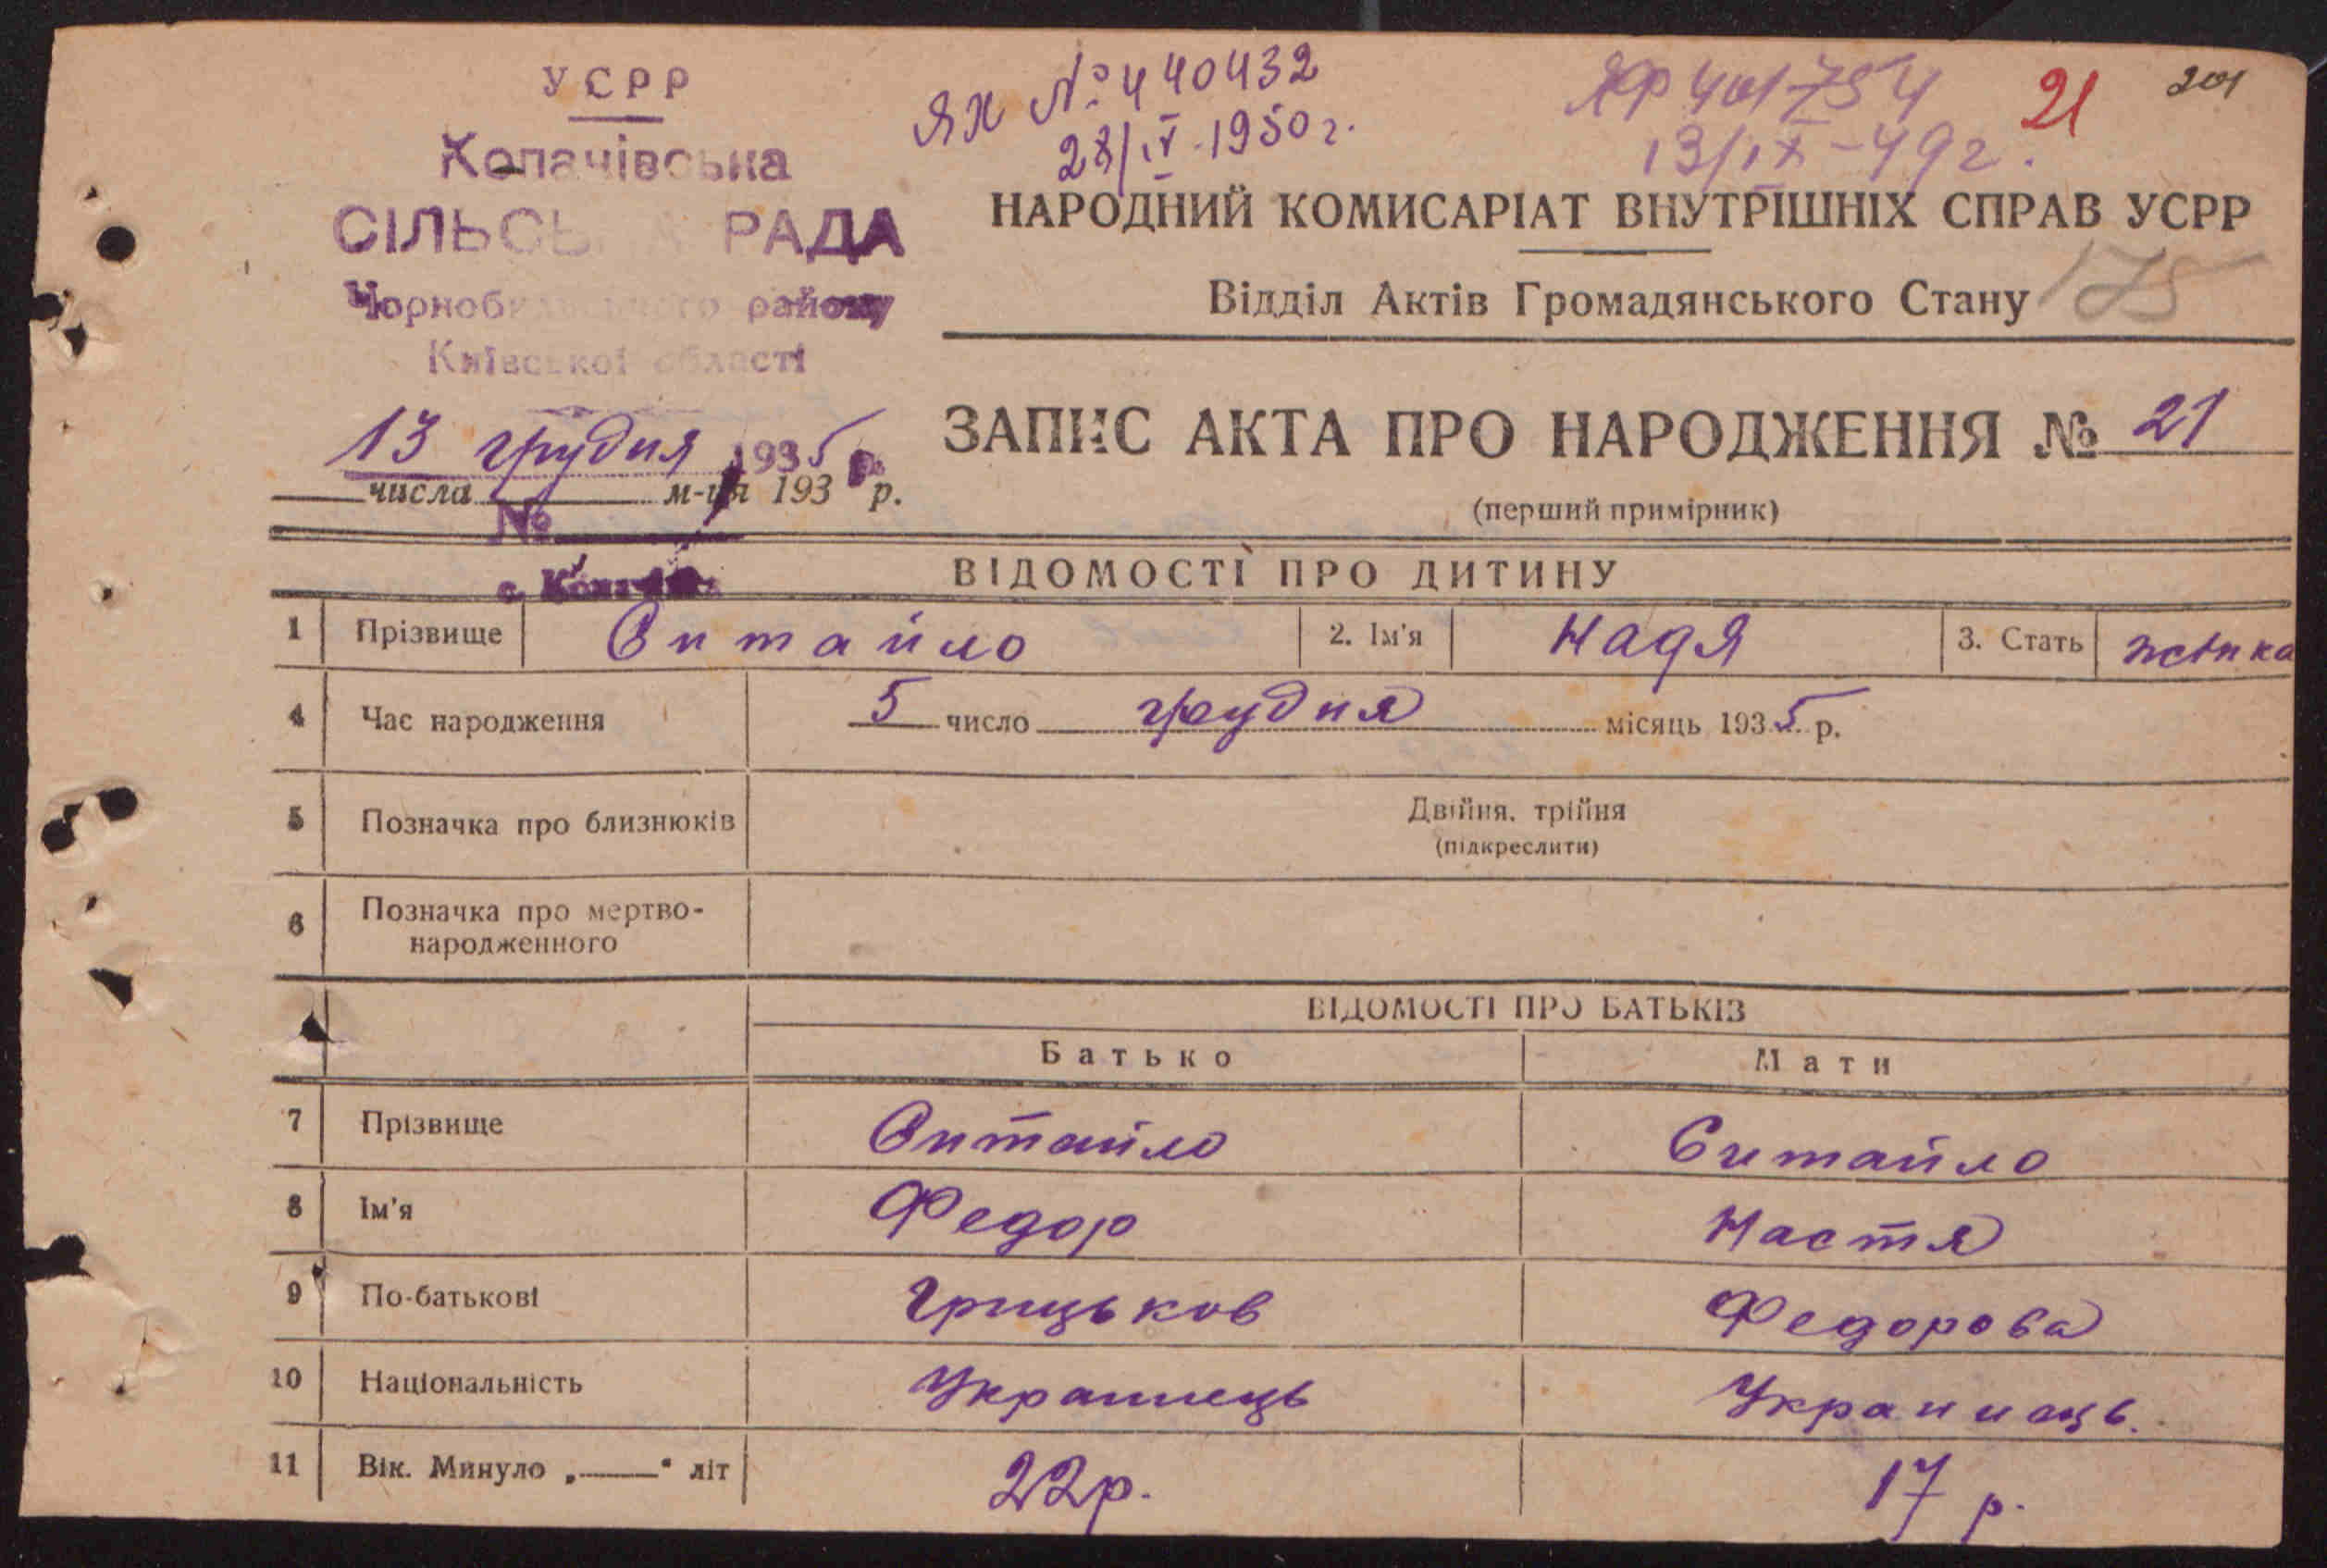 УСРР
Копачівська
СІЛЬСЬКА РАДА
Чорнобильського району
Київської області
13 грудня 1935 р.
числа м-ця 193 р.
№
с. Копачі
ЯЖ № 440432
28/IV-1950 г.
ЯФ 401754
13/IX-49 г.
21
201
НАРОДНИЙ КОМИСАРІАТ ВНУТРІШНІХ СПРАВ УСРР
Відділ Актів Громадянського Стану
175
ЗАПИС АКТА ПРО НАРОДЖЕННЯ № 21
(перший примірник)
ВІДОМОСТІ ПРО ДИТИНУ
1 Прізвище Ситайло 2. Ім'я Надя 3. Стать жінка
4 Час народження 5 число грудня місяць 1935 р.
5 Позначка про близнюків Двійня, трійня
(підкреслити)
6 Позначка про мертво-
народженного
ВІДОМОСТІ ПРО БАТЬКІВ
Батько Мати
7 Прізвище Ситайло Ситайло
8 Ім'я Федор Настя
9 По-батькові Грицьков Федорова
10 Національність Украинець Украинець.
11 Вік. Минуло „——“ літ 22 р. 17 р.